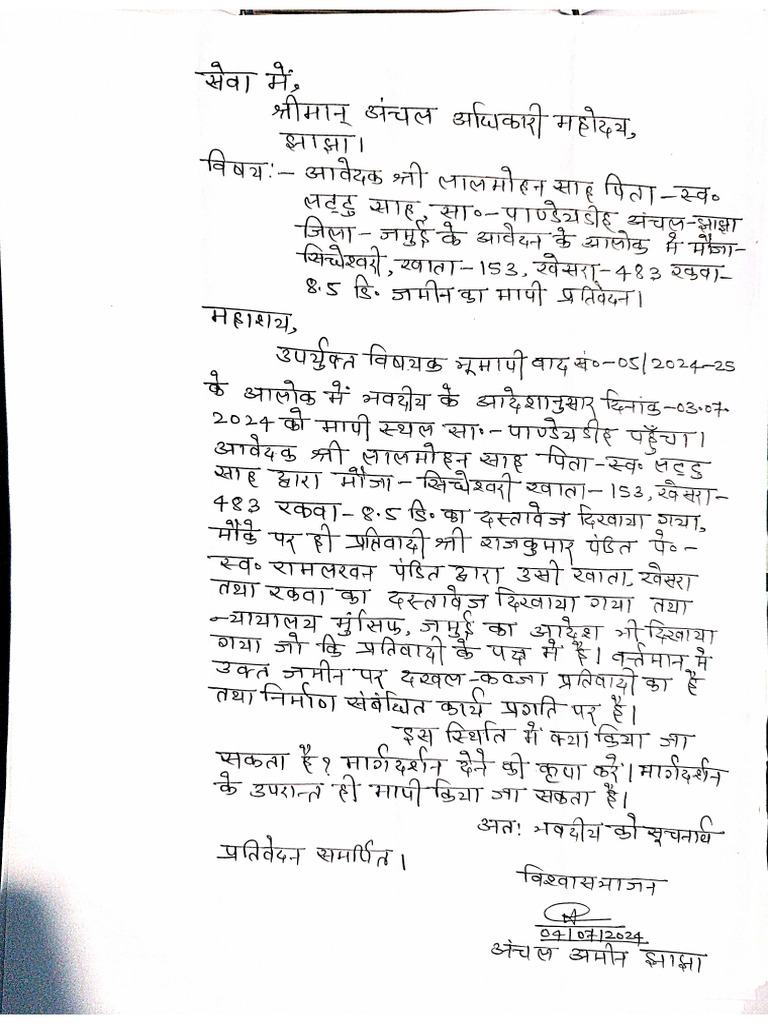 सेवा में,
श्रीमान् अंचल अधिकारी महोदय,
झाझा।
विषय:- आवेदक श्री लालमोहन साह पिता-स्व०
लट्टु साह, सा०-पाण्डेयडीह अंचल-झाझा
जिला-जमुई के आवेदन के आलोक में मौजा-
सिधेश्वरी, खाता-153, खेसरा-483 रकवा-
8.5 डि० जमीन का मापी प्रतिवेदन।
महाशय,
उपर्युक्त विषयक भूमापी वाद सं०-05/2024-25
के आलोक में भवदीय के आदेशानुसार दिनांक-03.07.
2024 को मापी स्थल सा०-पाण्डेयडीह पहुँचा।
आवेदक श्री लालमोहन साह पिता-स्व० लट्टु
साह द्वारा मौजा-सिधेश्वरी खाता-153, खेसरा-
483 रकवा-8.5 डि० का दस्तावेज दिखाया गया,
मौके पर ही प्रतिवादी श्री राजकुमार पंडित पे०-
स्व० रामलखन पंडित द्वारा उसी खाता, खेसरा
तथा रकवा का दस्तावेज दिखाया गया तथा
न्यायालय मुंसिफ, जमुई का आदेश भी दिखाया
गया जो कि प्रतिवादी के पक्ष में है। वर्त्तमान में
उक्त जमीन पर दखल-कब्जा प्रतिवादी का है
तथा निर्माण संबंधित कार्य प्रगति पर है।
इस स्थिति में क्या किया जा
सकता है? मार्गदर्शन देने की कृपा करें। मार्गदर्शन
के उपरान्त ही मापी किया जा सकता है।
अत: भवदीय को सूचनार्थ
प्रतिवेदन समर्पित।
विश्वासभाजन
04/07/2024
अंचल अमीन झाझा